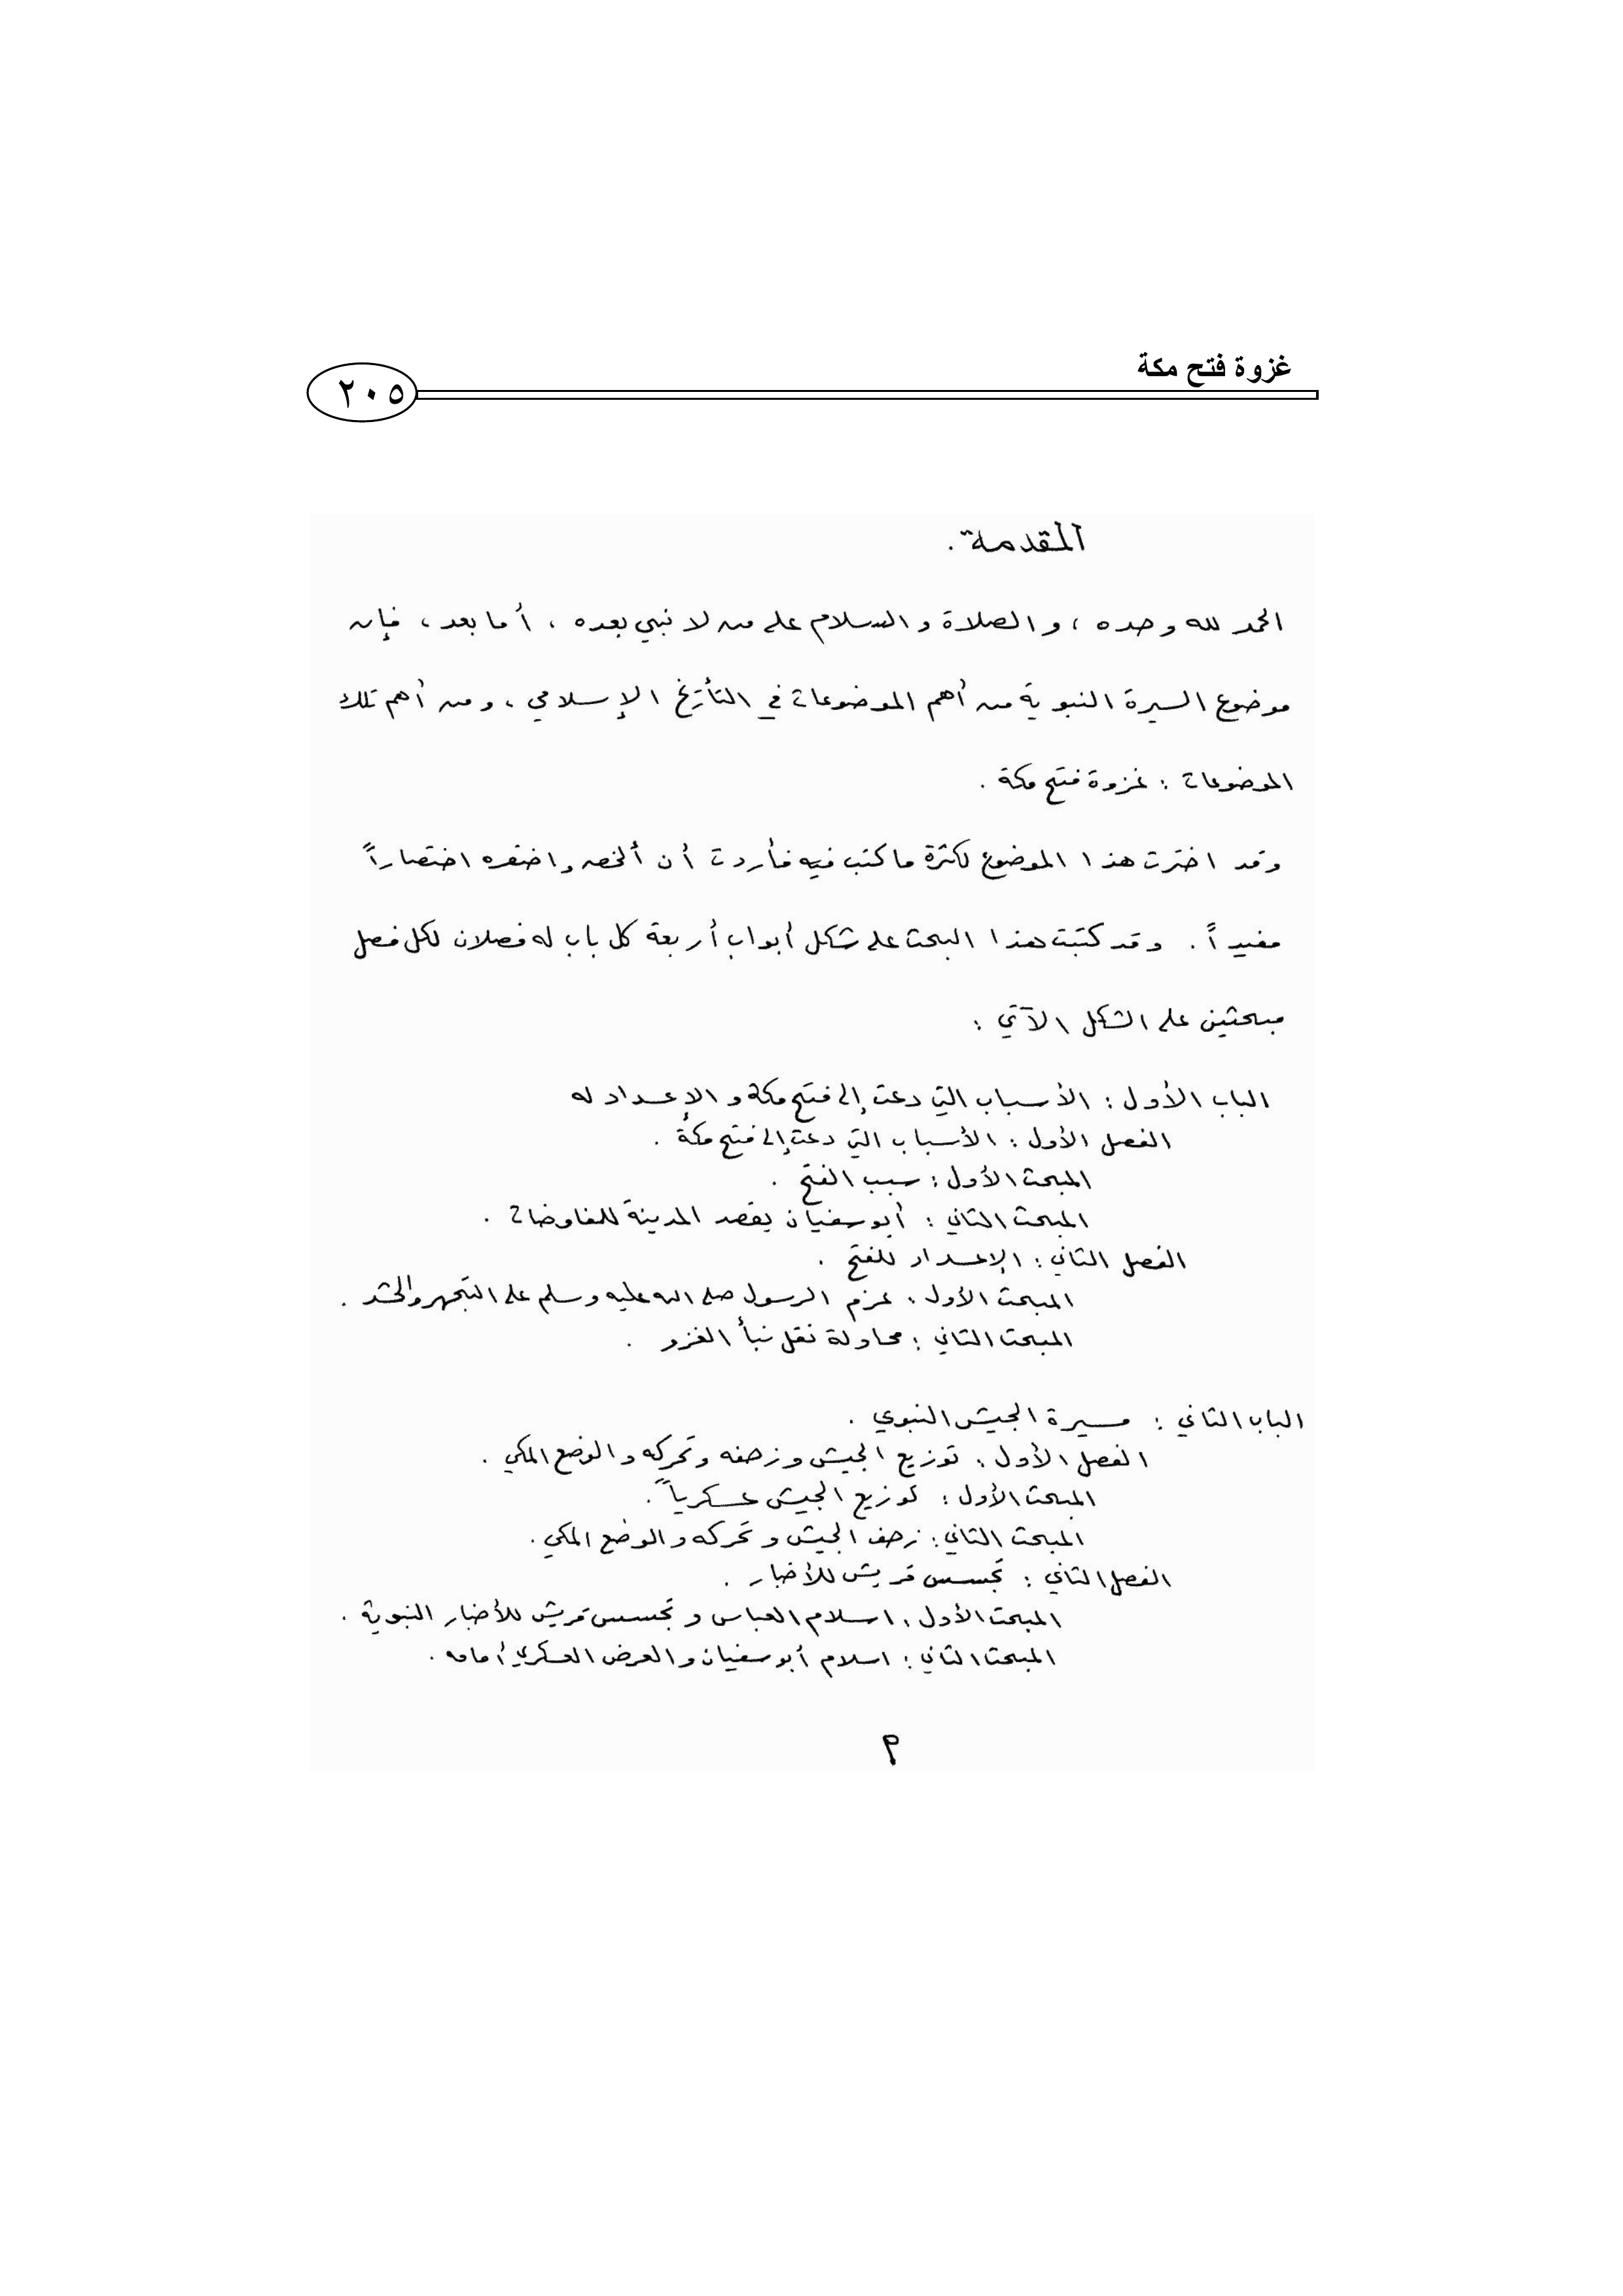 غزوة فتح مكة
٢٠٥
المقدمة.
الحمد لله وحده ، والصلاة والسلام على من لا نبي بعده ، أما بعد ، فإن
موضوع السيرة النبوية من أهم الموضوعات في التأريخ الإسلامي ، ومن أهم تلك
الموضوعات : غزوة فتح مكة .
وقد اخترت هذا الموضوع لكثرة ما كتب فيه فأردت أن ألخصه واختصره اختصاراً
مفيداً . وقد كتبت هذا البحث على شكل أبواب أربعة كل باب له فصلان لكل فصل
مبحثين على الشكل الآتي :
الباب الأول : الأسباب التي دعت إلى فتح مكة والإعداد له
الفصل الأول : الأسباب التي دعت إلى فتح مكة .
المبحث الأول : سبب الفتح .
المبحث الثاني : أبو سفيان يقصد المدينة للمفاوضات .
الفصل الثاني : الإعداد للفتح .
المبحث الأول : عزم الرسول صلى الله عليه وسلم على التجهز والحشد .
المبحث الثاني : محاولة نقل نبأ الغزو .
الباب الثاني : مسيرة الجيش النبوي .
الفصل الأول : توزيع الجيش وزحفه وتحركه والوضع المكي .
المبحث الأول : توزيع الجيش عسكرياً .
المبحث الثاني : زحف الجيش وتحركه والوضع المكي .
الفصل الثاني : تجسس قريش للأخبار .
المبحث الأول : اسلام العباس وتجسس قريش للأخبار النبوية .
المبحث الثاني : اسلام أبو سفيان والعرض العسكري أمامه .